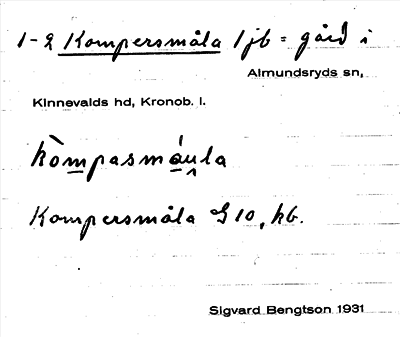 1-2 Kompersmåla 1 jb = gård i
Almundsryds sn,
Kinnevalds hd, Kronob. l.
kòmpasmáu̯la
Kompersmåla G 10, kb.
Sigvard Bengtson 1931